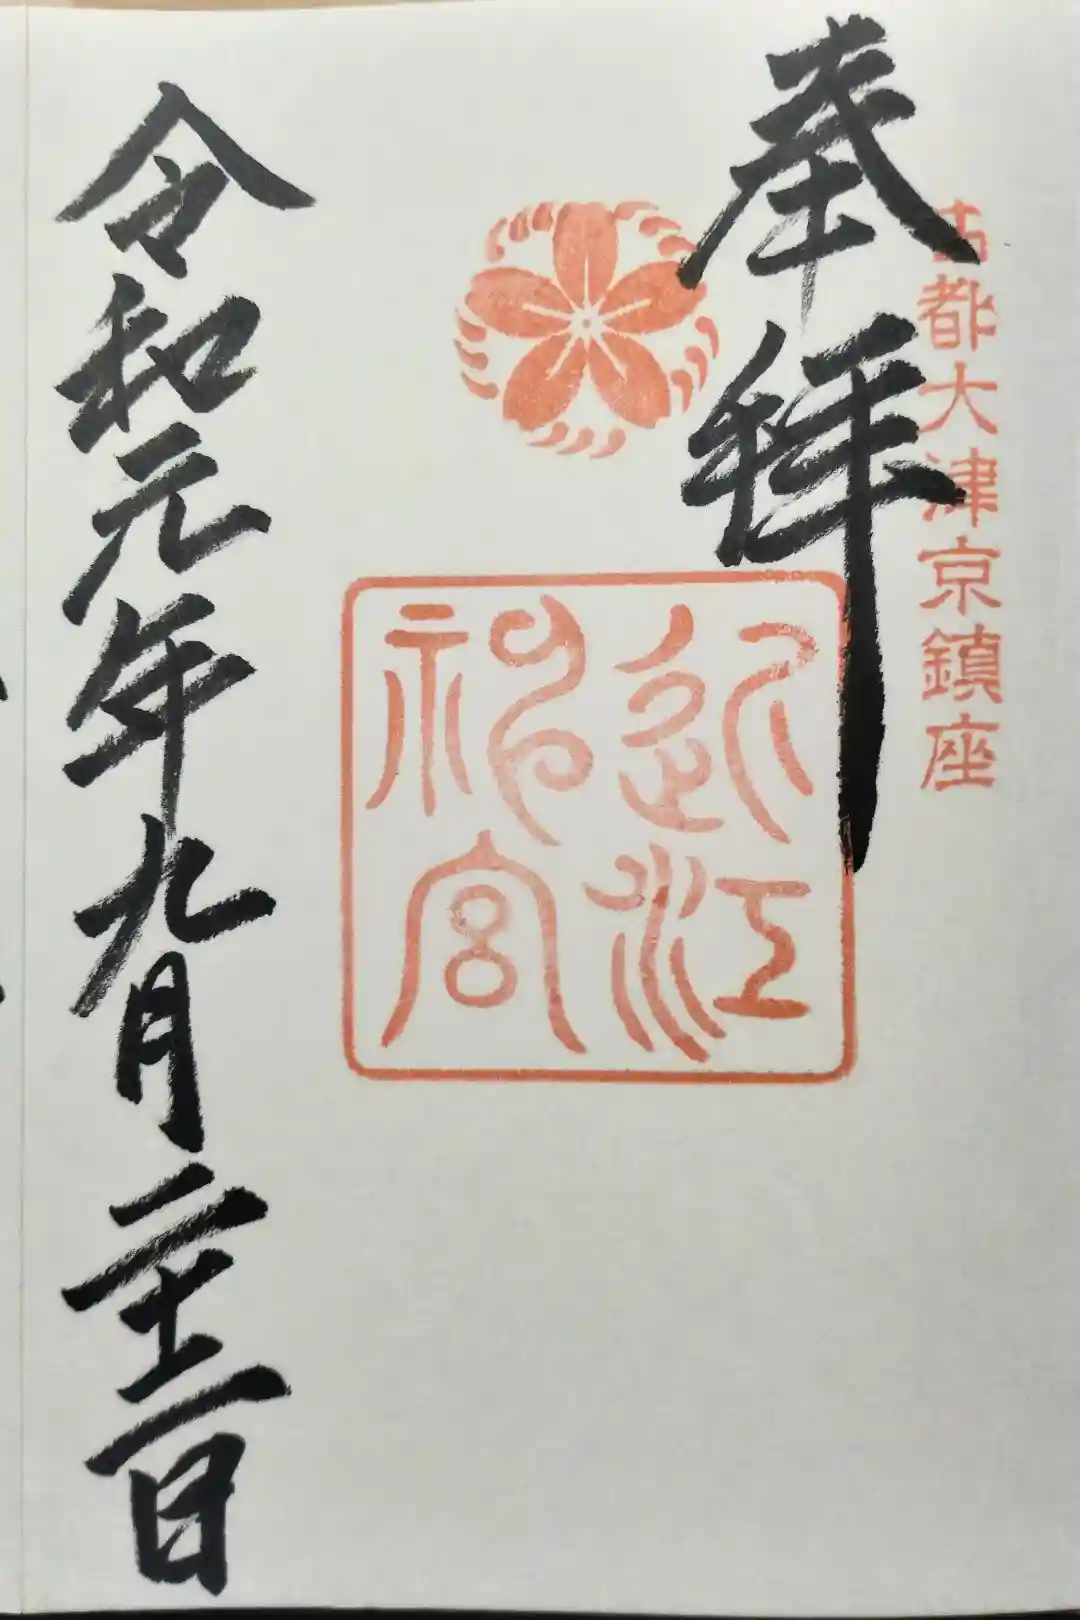 奉拝
古都大津京鎮座
近江
神宮
令和元年九月二十二日